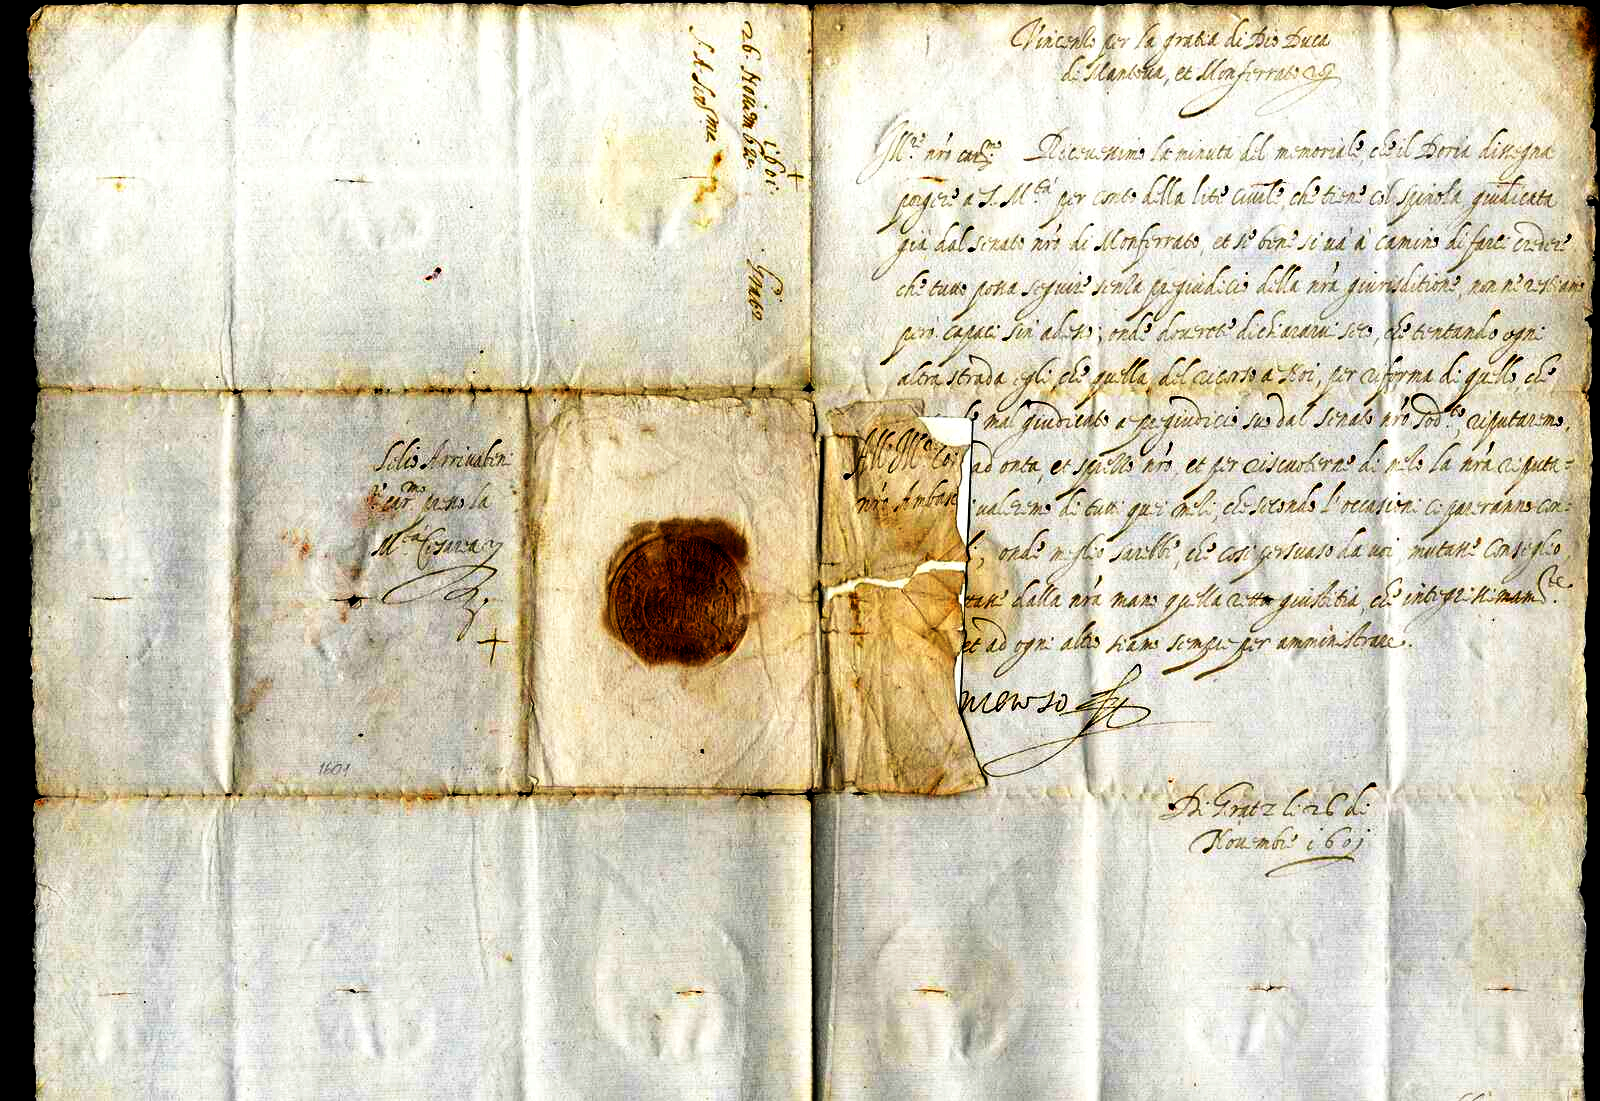 26. Novembre 1601
S. A. Ser.ma
Gratz
Vincenzo per la gratia di Dio Duca
di Mantova, et Monferrato etc.
M.re n̄ro car.mo Ricevessimo la minuta del memoriale, che il Doria dissegna
porgere a S. M.tà per conto della lite civile, che tiene col Spinola, giudicata
già dal senato n̄ro di Monferrato, et se bene si và à camino di farci credere
che tutto possa seguire senza pregiudicio della n̄ra giurisditione, non ne restiamo
però capaci sin' adesso; onde dovrete dichiararvi seco, che tentando ogni
altra strada egli che quella del ricorso a Noi, per riforma di quello che
mal giudicato a pregiudicio suo dal senato n̄ro sod.to riputaremo,
ad onta, et sprezzo n̄ro, et per riscuoterne di melo la n̄ra reputa=
valeremo di tutti quei meli, che secondo l'occasioni ci pareranno con=
onde meglio sarebbe, che così persuaso da voi, mutasse conseglio,
dalla n̄ra mano quella retta giustitia, che integrissimam.te
et ad ogni altro siamo sempre per amministrare.
All M.re
n̄ro Ambasc
Lelio Arrivaben
car.mo presso la
M.tà Cesarea
1601
Di Gratz li 26 di
Novembre 1601